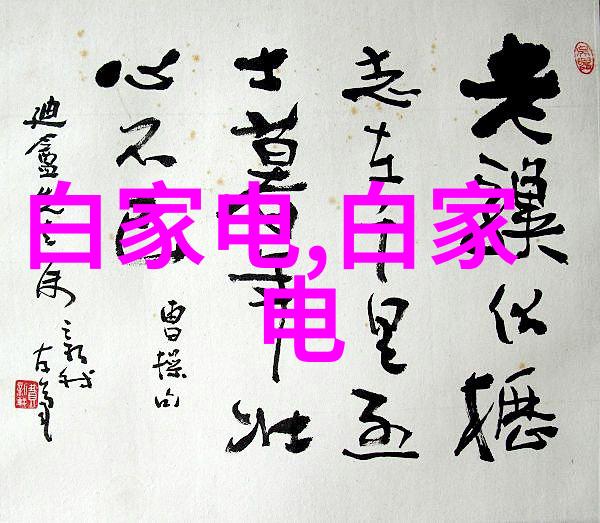 白家电,白家
电
老驥伏櫪
志在千里烈
士暮年壮
心不已
曹操句